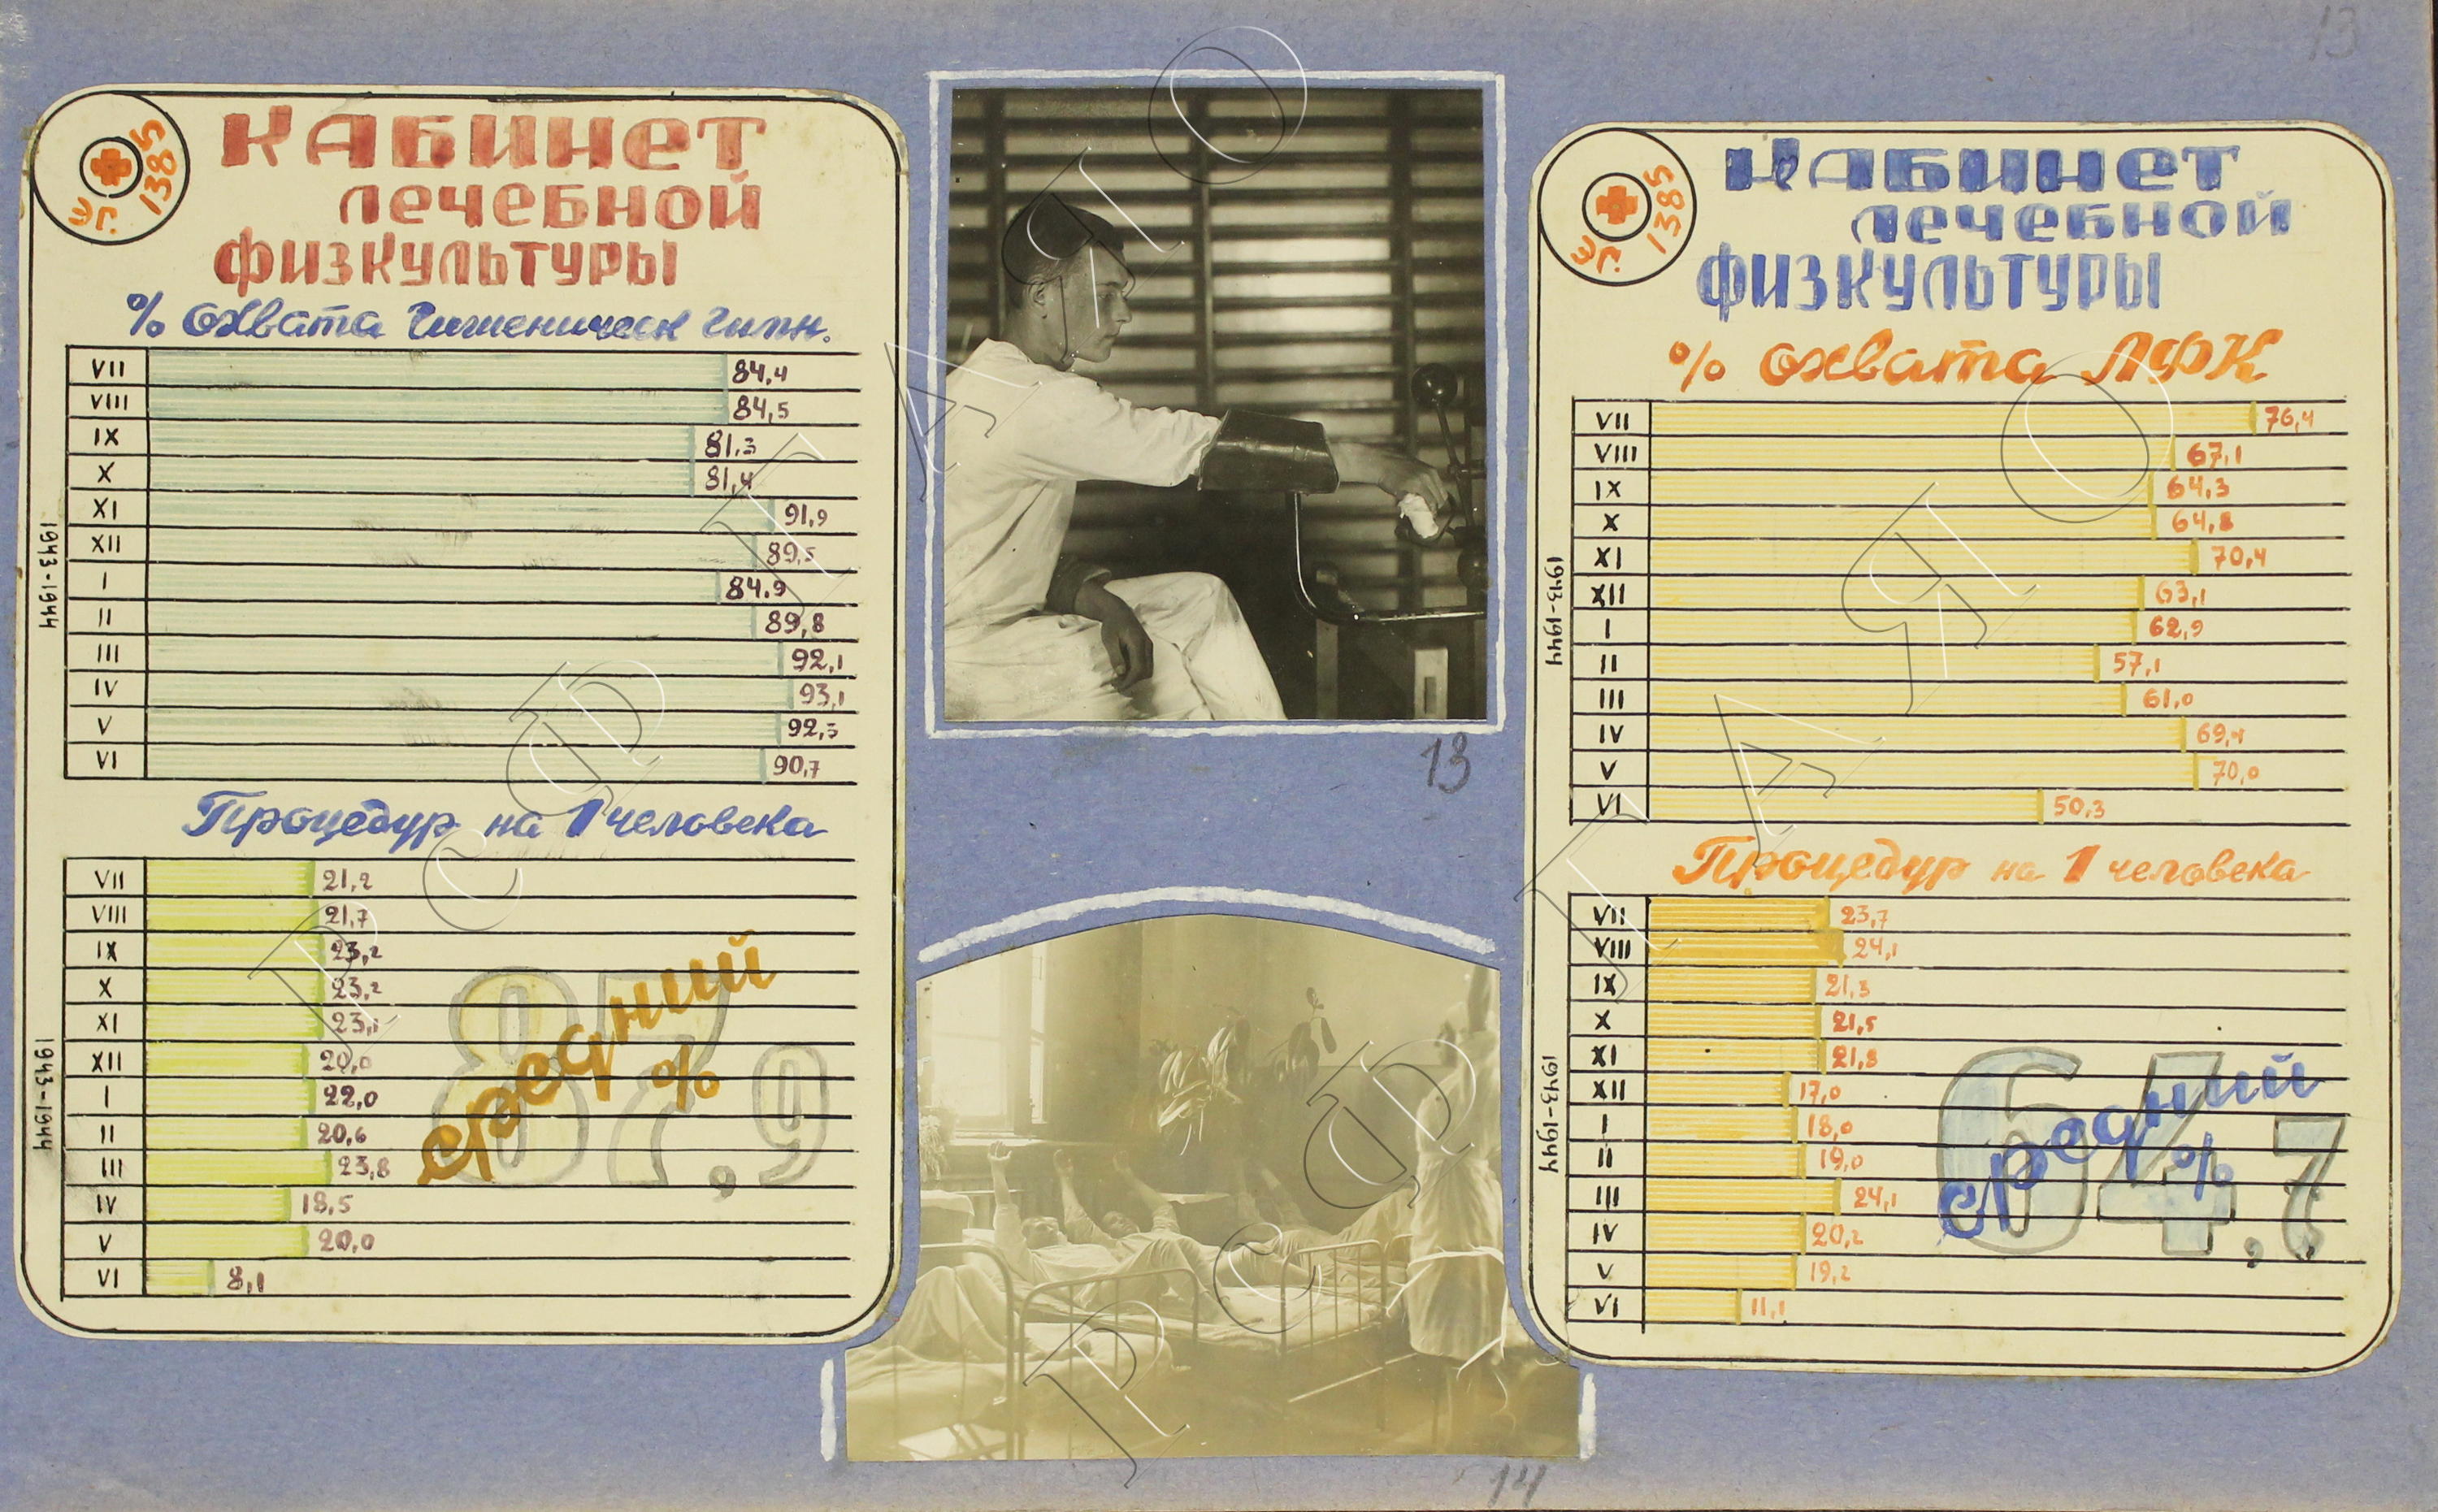 13
ЭГ. 1385
КАБИНЕТ
лечебной
физкультуры
% охвата гигиеническ гимн.
1943-1944
VII 84,4
VIII 84,5
IX 81,3
X 81,4
XI 91,9
XII 89,5
I 84,9
II 89,8
III 92,1
IV 93,1
V 92,3
VI 90,7
Процедур на 1 человека
1943-1944
VII 21,2
VIII 21,7
IX 23,2
X 23,2
XI 23,1
XII 20,0
I 22,0
II 20,6
III 23,8
IV 18,5
V 20,0
VI 8,1
средний
%
87,9
13
14
ЭГ. 1385
КАБИНЕТ
лечебной
физкультуры
% охвата ЛФК
1943-1944
VII 76,4
VIII 67,1
IX 64,3
X 64,8
XI 70,4
XII 63,1
I 62,9
II 57,1
III 61,0
IV 69,4
V 70,0
VI 50,3
Процедур на 1 человека
1943-1944
VII 23,7
VIII 24,1
IX 21,3
X 21,5
XI 21,8
XII 17,0
I 18,0
II 19,0
III 24,1
IV 20,2
V 19,2
VI 11,1
средний
%
64,7
РСФ ГАЯО
РСФ ГАЯО